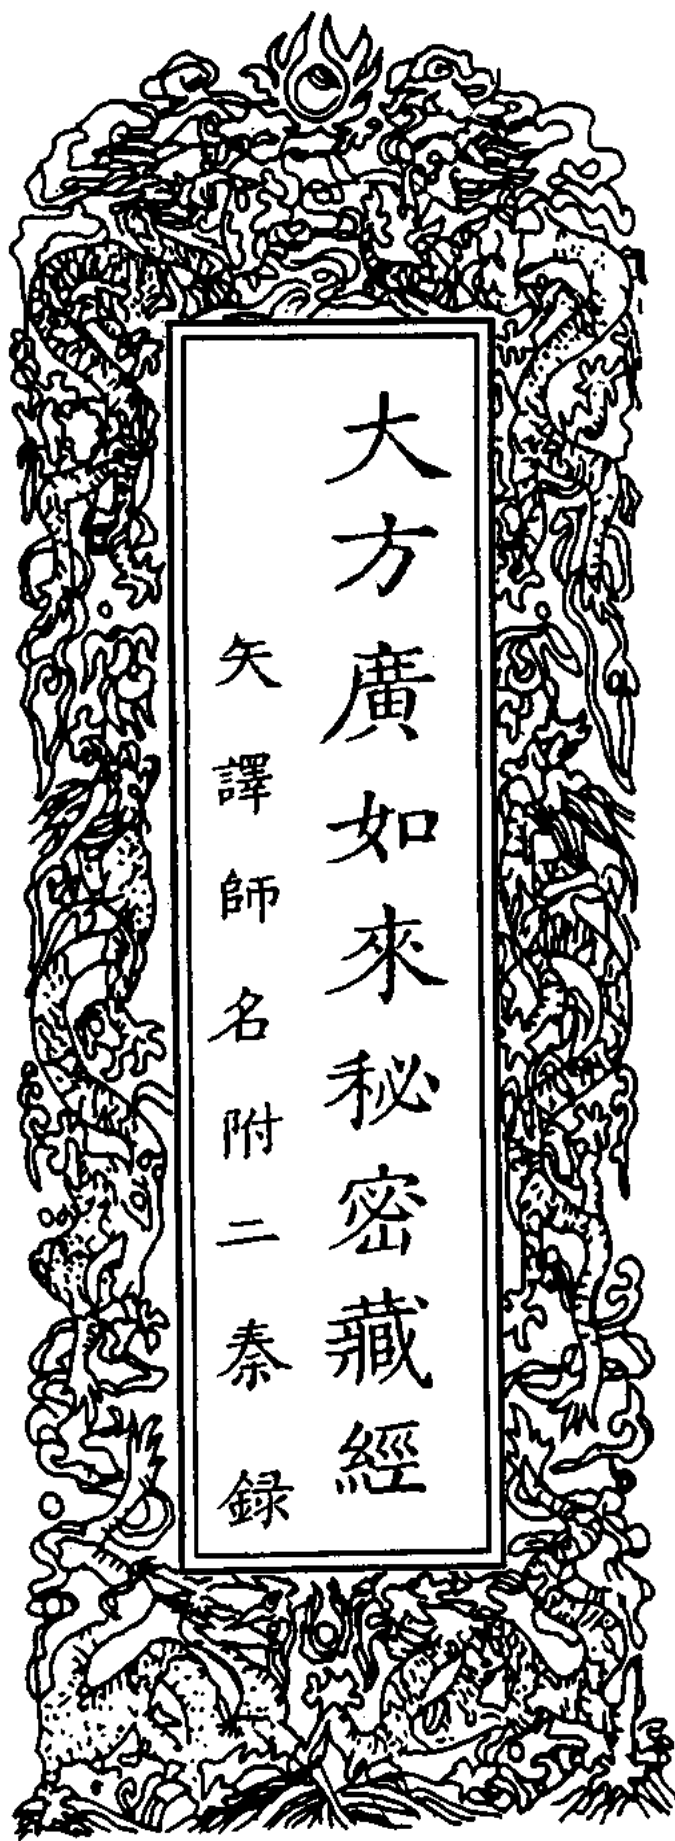 大方廣如來秘密藏經
矢譯師名附二秦録